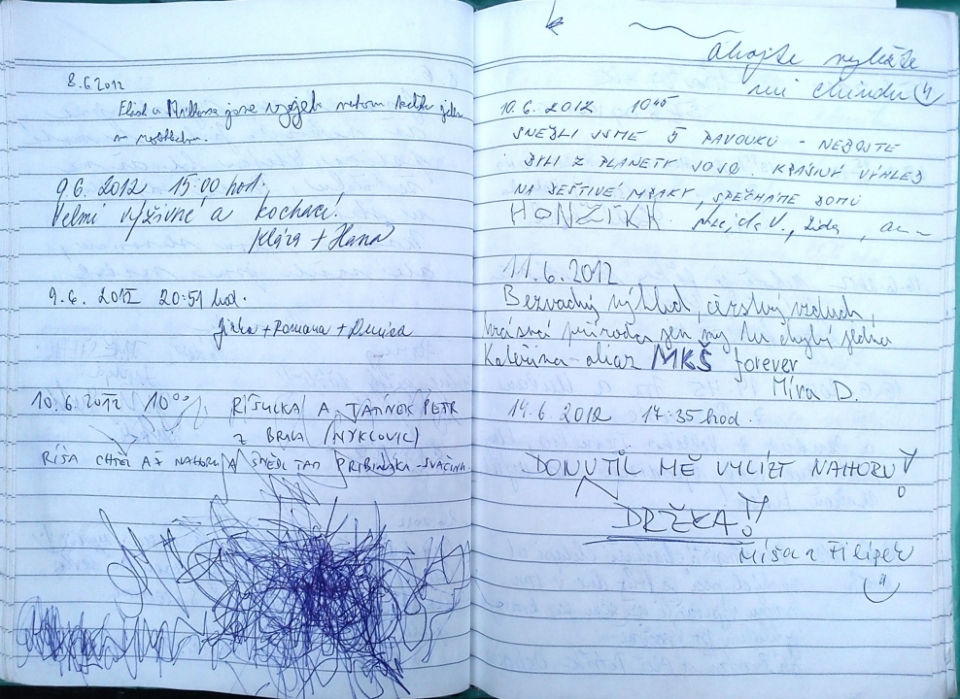 8.6.2012
jsme
9.6.2012 15:00 hod.
Velmi výživné a kochací!
Klára + Hana
9.6. 2012 20:51 hod.
Jirka + Romana + Denisa
10.6.2012 10⁰⁰ RÍŠULKA A TATÍNEK PETR
Z BRNA (NYKLOVIC)
RÍŠA CHTĚL AŽ NAHORU A SNĚDL TAM PRIBINÁKA - SVAČINA
Ahojte
mi
10.6. 2012 10⁴⁵
SNĚDLI JSME 5 PAVOUKŮ - NEBOJTE
BYLI Z PLANETY JOJO. KRÁSNÝ VÝHLED
NA DEŠTIVÉ MRAKY, SPĚCHÁME DOMŮ
HONZÍK
11.6.2012
Bezvadný výhled, čerstvý vzduch,
krásná příroda jen my tu chybí jedna
Kateřina - aliaz MKŠ forever
Míra D.
14.6.2012 17:35 hod.
DONUTIL MĚ VYLÍZT NAHORU!
DRŽKA!!
Míša a Filípek